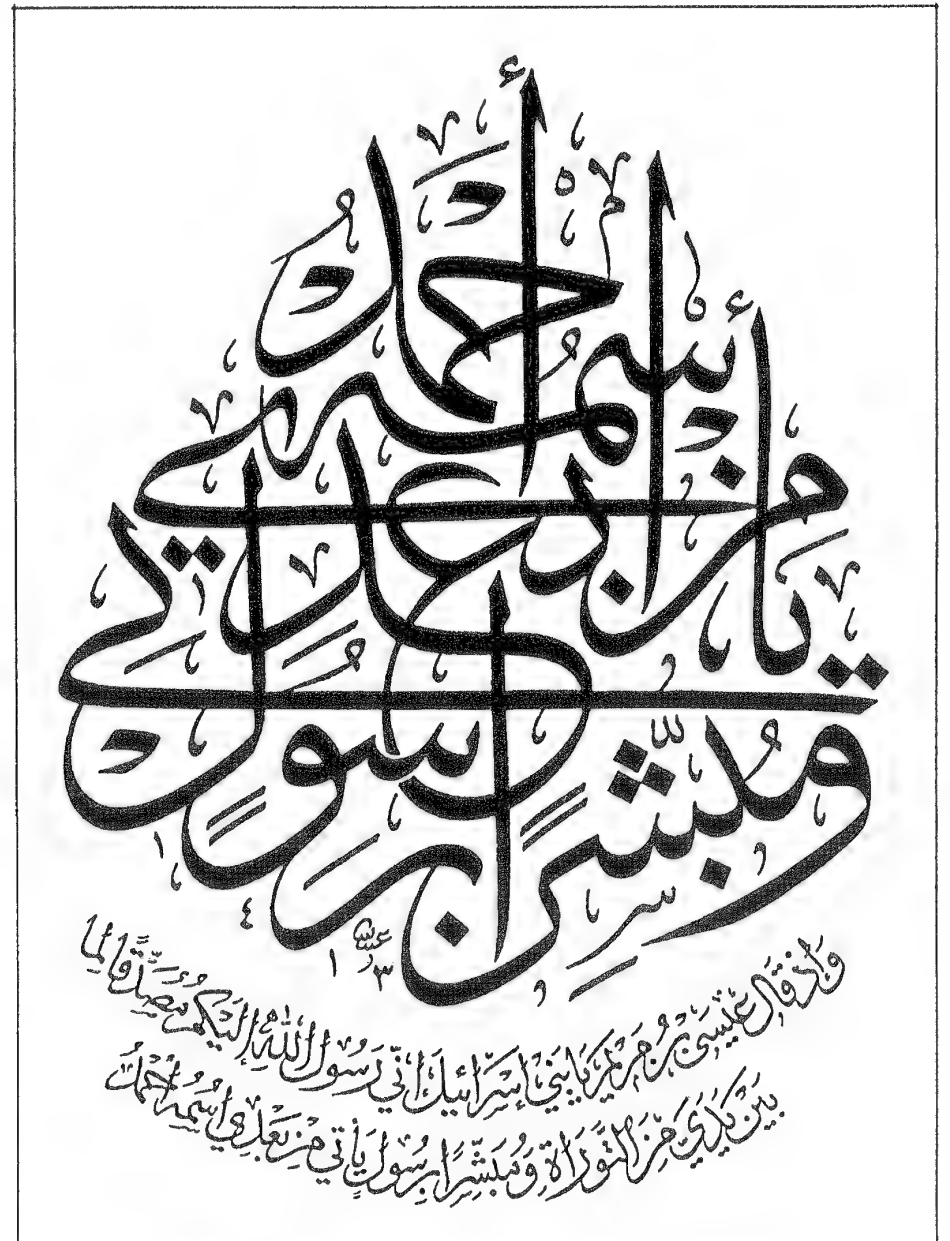 ومبشرًا برسول يأتي من بعدي أسمه أحمد
١٣٤١
وَاِذ قَالَ عِيسَى بْنُ مَرْيَمَ يَا بَنِي إِسْرَائِيلَ اِنِّي رَسُولُ اللهِ اِلَيْكُمْ مُصَدِّقًا لِمَا
بَيْنَ يَدَيَّ مِنَ التَّوْرَاةِ وَمُبَشِّرًا بِرَسُولٍ يَأْتِي مِنْ بَعْدِي اسْمُهُ أَحْمَدُ